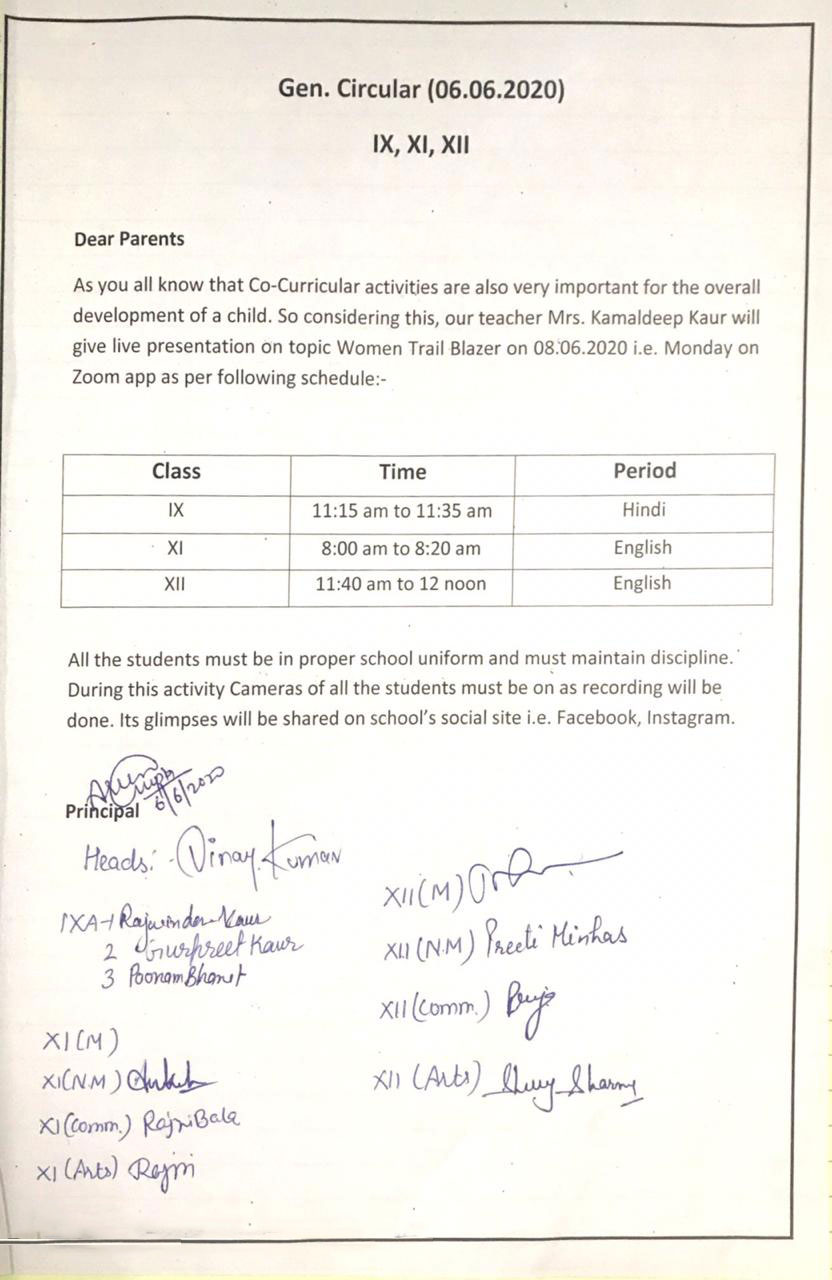 Gen. Circular (06.06.2020)
IX, XI, XII
Dear Parents
As you all know that Co-Curricular activities are also very important for the overall
development of a child. So considering this, our teacher Mrs. Kamaldeep Kaur will
give live presentation on topic Women Trail Blazer on 08.06.2020 i.e. Monday on
Zoom app as per following schedule:-
Class Time Period
IX 11:15 am to 11:35 am Hindi
XI 8:00 am to 8:20 am English
XII 11:40 am to 12 noon English
All the students must be in proper school uniform and must maintain discipline.
During this activity Cameras of all the students must be on as recording will be
done. Its glimpses will be shared on school's social site i.e. Facebook, Instagram.
6/6/2020
Principal
Heads: Vinay Kumar
IXA-1 Rajwinder Kaur
2 Gurpreet Kaur
3 Poonam Bhanot
XI (M)
XI (N.M)
XI (Comm.) Rajni Bala
XI (Arts) Rajni
XII (M)
XII (N.M) Preeti Minhas
XII (Comm.)
XII (Arts) Sharma